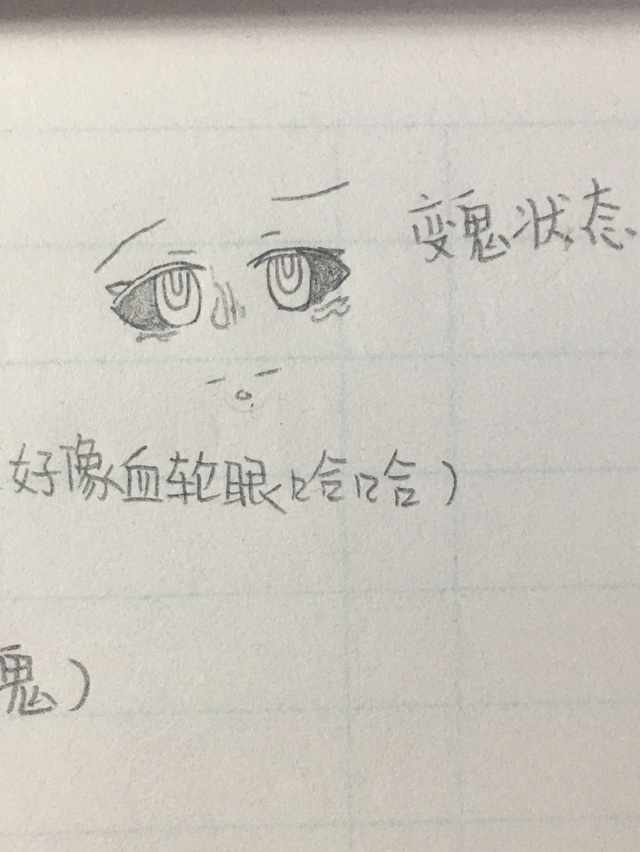 变鬼状态
好像血轮眼哈哈)
鬼)